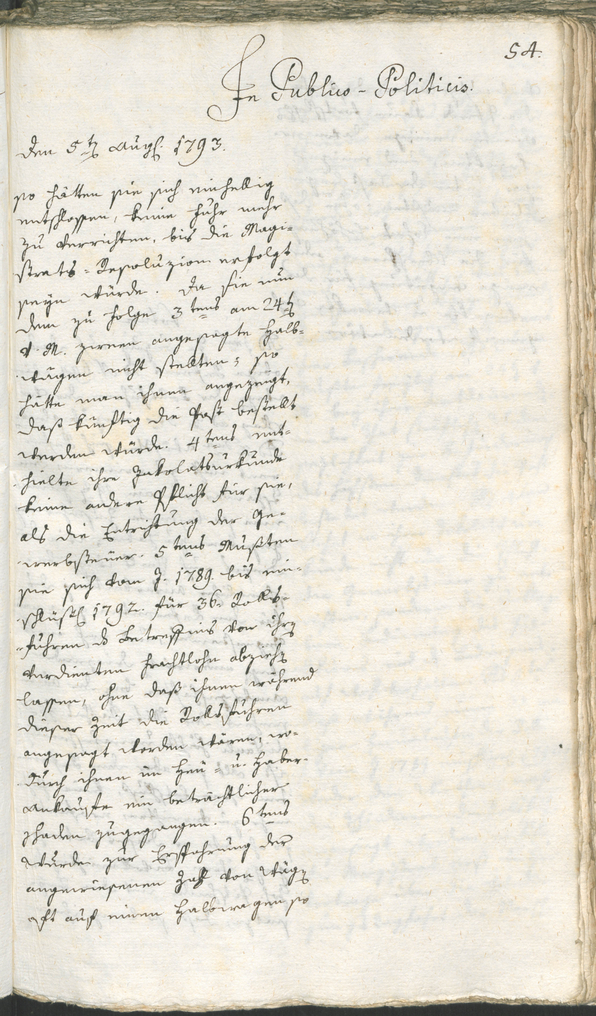 54.
In Publico-Politicis.
Den 5t Augs. 1793.
so hätten sie sich einhellig
entschlossen, keine Fuhr mehr
zu verrichten, bis die Magi-
strats-Resoluzion erfolgt
seyn würde. Da sie nun
dem zu Folge 3tens am 24t
v. M. zween angesagte Halb-
wägen nicht stellten; so
hätte man ihnen angezeigt,
daß künftig die Post bestellt
werden würde. 4tens ent-
hielte ihre Inkolatsurkunde
keine andere Pflicht für sie,
als die Entrichtung der Ge-
werbsteuer. 5tens Mußten
sie sich vom J. 1789 bis ein-
schlüßl. 1792. für 36. Robots-
fuhren das Betreffnis von ihrem
verdienten Frachtlohn abziehen
lassen, ohne daß ihnen während
dieser Zeit die Robotsfuhren
angesagt worden wären, wo-
durch ihnen im Heu- u. Haber-
ankaufe ein beträchtlicher
Schaden zugegangen. 6tens
würde zur Ersparung der
angewiesenen Zahl von Wägen
oft auf einen Halbwagen so